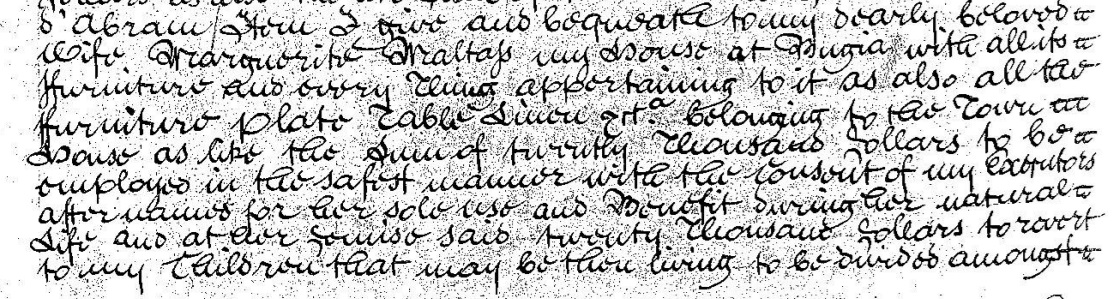 d'Abram Item I give and bequeath to my dearly beloved
Wife Marguerite Maltass my House at Bugia with all its
ffurniture and every Thing appertaining to it as also all the
ffurniture Plate Table Linen &ct.a belonging to the Town
House as like the Sum of twenty Thousand Dollars to be
employed in the safest manner with the Consent of my Executors
after named for her sole use and Benefit during her natural
Life and at her Demise said twenty Thousand Dollars to revert
to my Children that may be then living to be divided amongst